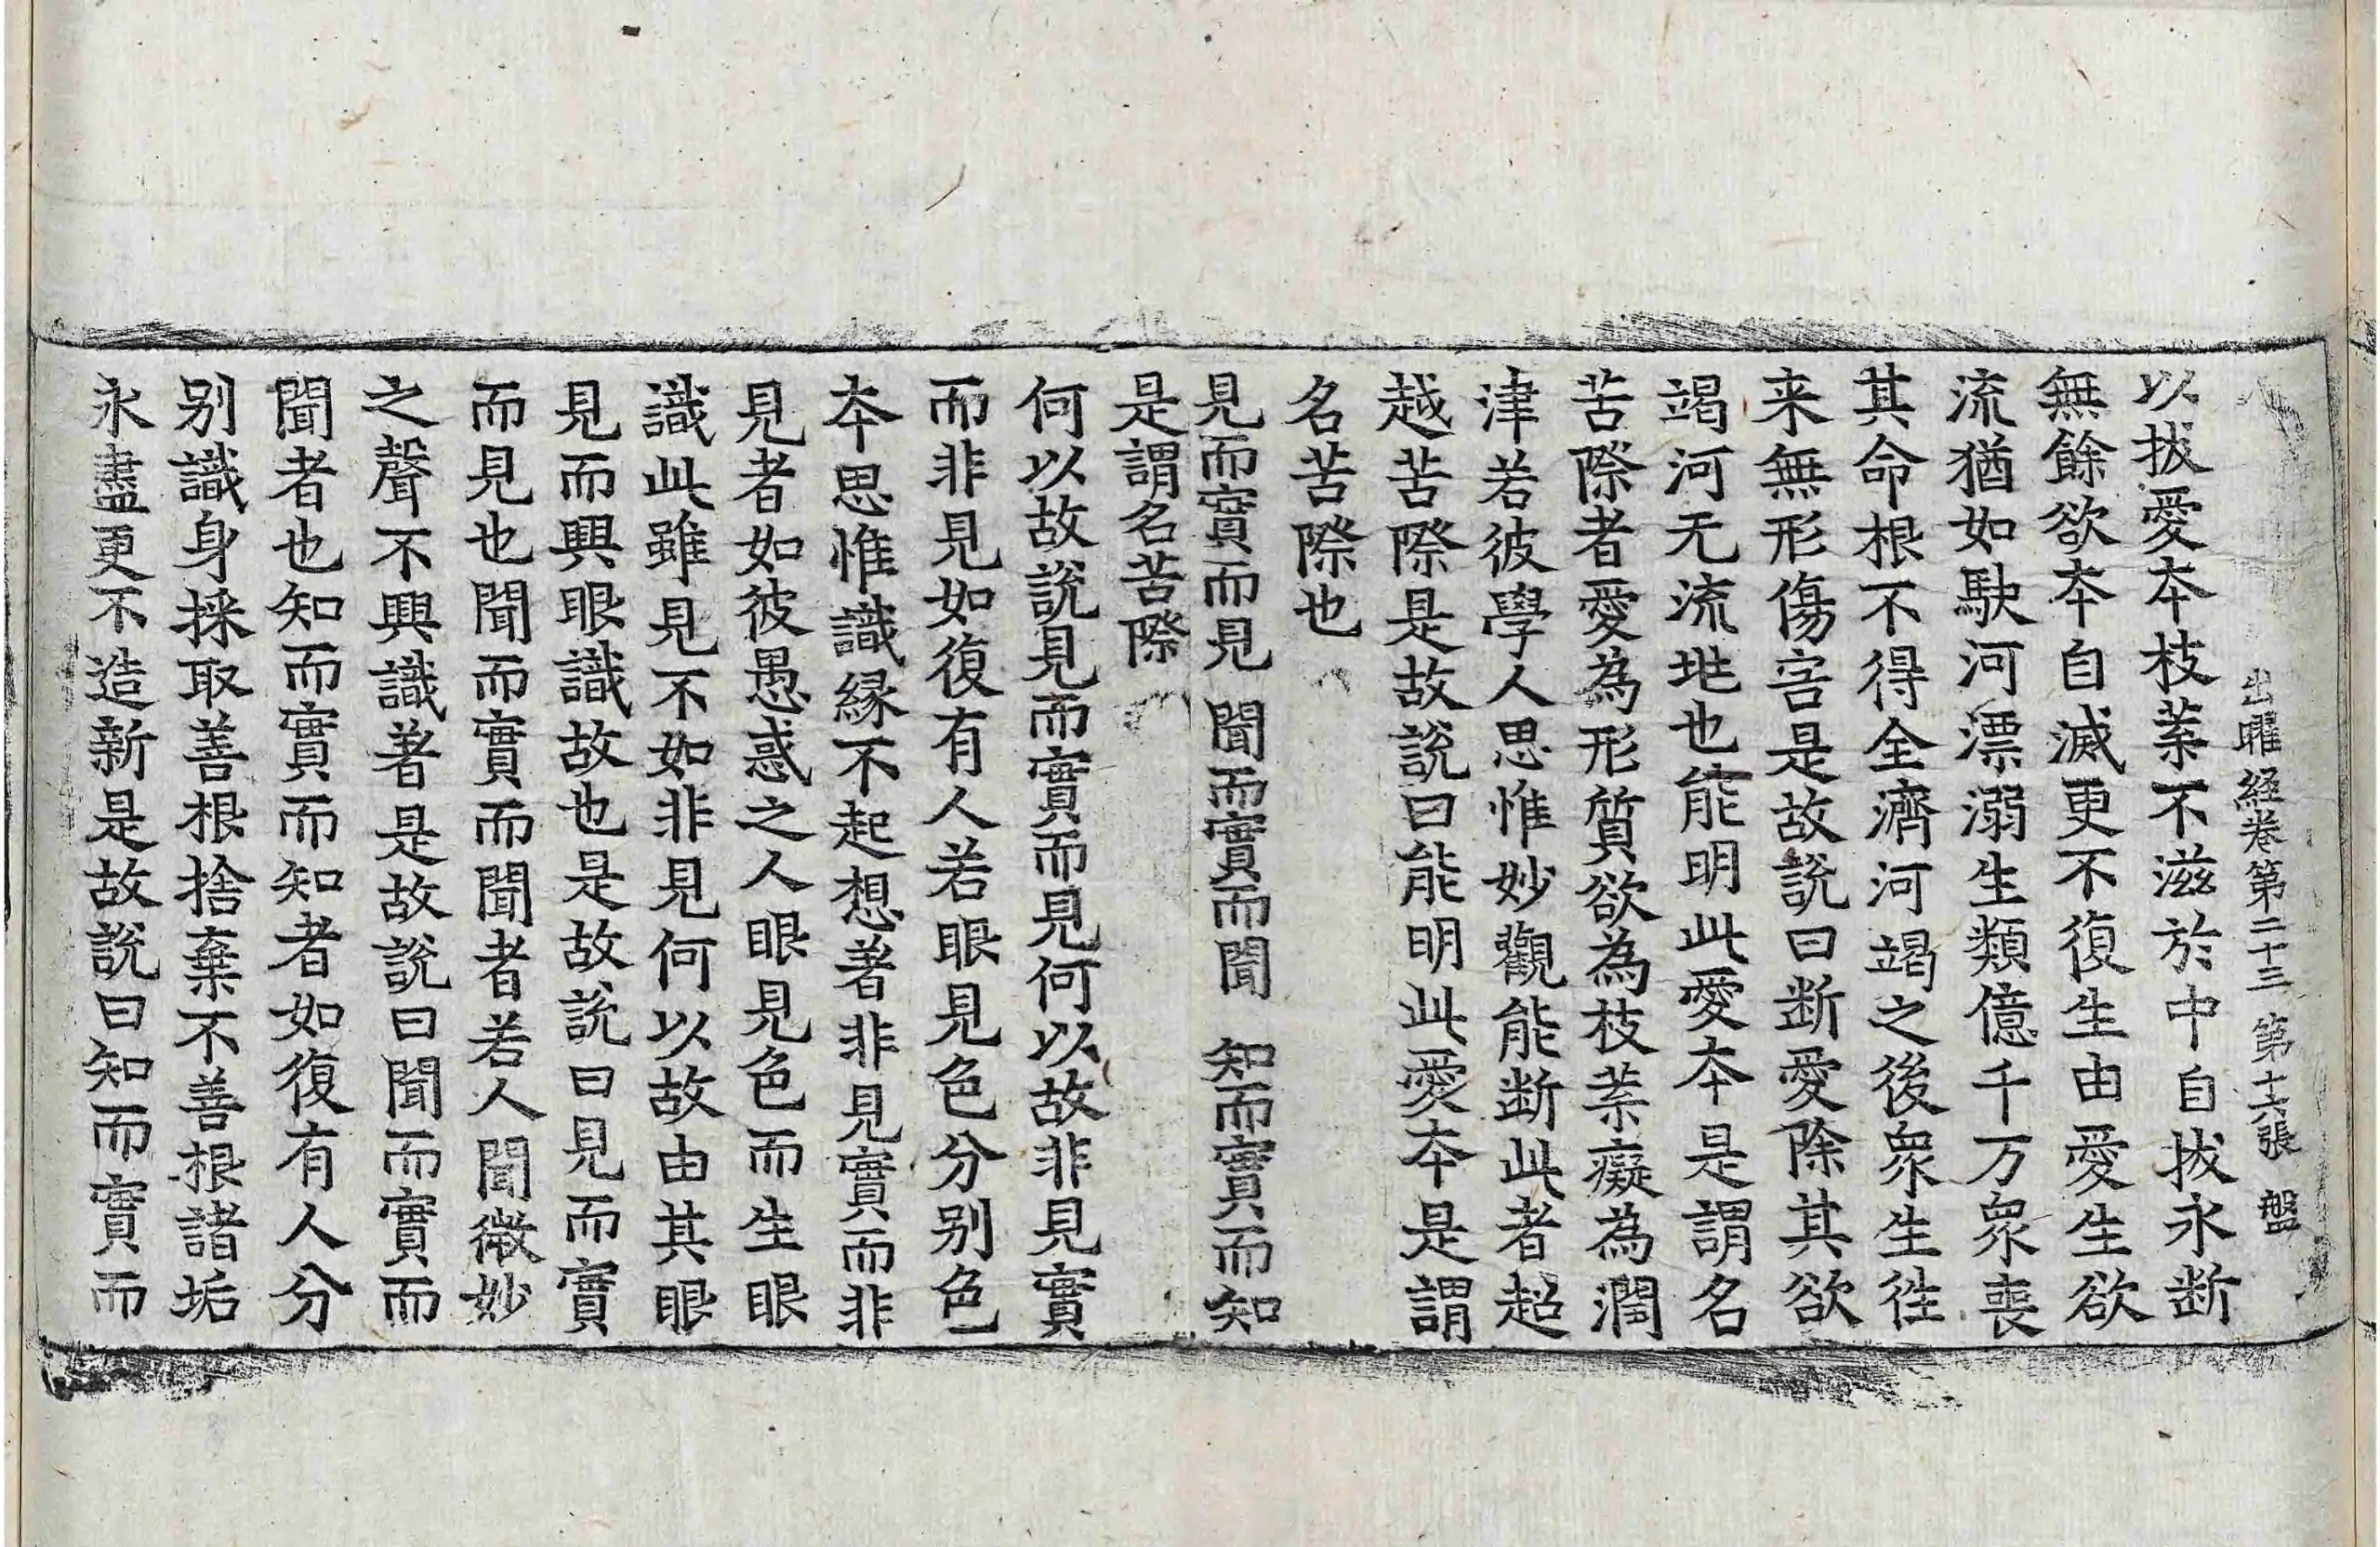 出曜経卷第二十三 第十六張 盤
以拔愛夲枝葉不滋於中自拔永断
無餘欲夲自滅更不復生由愛生欲
流猶如駃河漂溺生類億千万衆喪
其命根不得全濟河竭之後衆生徃
来無形傷害是故說曰断愛除其欲
竭河无流地也能明此愛夲是謂名
苦際者愛為形質欲為枝葉癡為潤
津若彼學人思惟妙觀能断此者超
越苦際是故說曰能明此愛夲是謂
名苦際也
見而實而見 聞而實而聞 知而實而知
是謂名苦際
何以故說見而實而見何以故非見實
而非見如復有人若眼見色分別色
夲思惟識緣不起想著非見實而非
見者如彼愚惑之人眼見色而生眼
識此雖見不如非見何以故由其眼
見而興眼識故也是故說曰見而實
而見也聞而實而聞者若人聞微妙
之聲不興識著是故說曰聞而實而
聞者也知而實而知者如復有人分
別識身採取善根捨棄不善根諸垢
永盡更不造新是故說曰知而實而